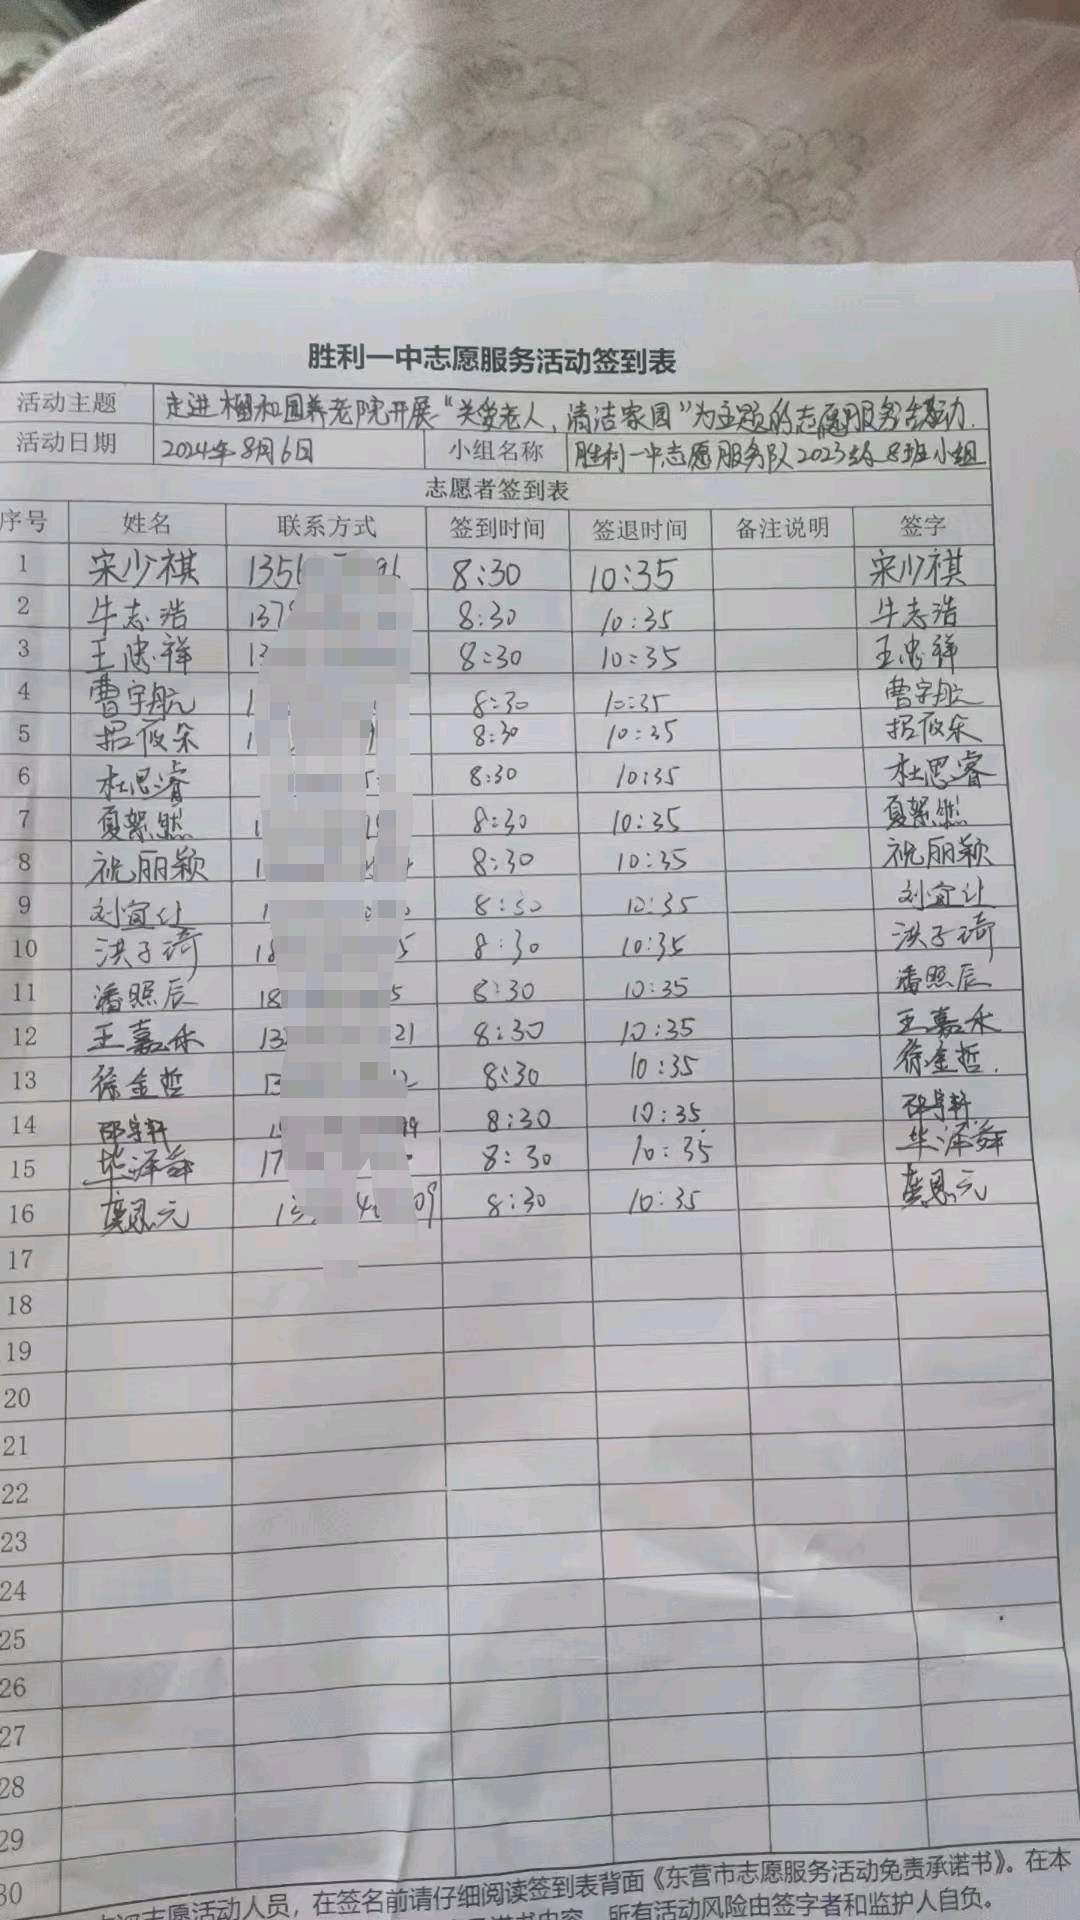 胜利一中志愿服务活动签到表
活动主题 走进 和园养老院开展“关爱老人，清洁家园”为主题的志愿服务活动.
活动日期 2024年8月6日 小组名称 胜利一中志愿服务队2023级8班小组
志愿者签到表
序号 姓名 联系方式 签到时间 签退时间 备注说明 签字
1 宋少祺 1356 8:30 10:35 宋少祺
2 牛志浩 137 8:30 10:35 牛志浩
3 王忠祥 13 8:30 10:35 王忠祥
4 曹宇航 1 8:30 10:35 曹宇航
5 招筱朵 1 8:30 10:35 招筱朵
6 杜思睿 8:30 10:35 杜思睿
7 夏絮然 1 8:30 10:35 夏絮然
8 祝丽颖 1 8:30 10:35 祝丽颖
9 刘宜 1 8:30 10:35 刘宜
10 洪子琦 18 5 8:30 10:35 洪子琦
11 潘照辰 18 5 8:30 10:35 潘照辰
12 王嘉禾 13 21 8:30 10:35 王嘉禾
13 徐金哲 13 2 8:30 10:35 徐金哲.
14 邵宇轩 1 99 8:30 10:35 邵宇轩
15 华泽舜 17 8:30 10:35 华泽舜
16 龚恩元 09 8:30 10:35 龚恩元
17
18
19
20
21
22
23
24
25
26
27
28
29
30
志愿活动人员，在签名前请仔细阅读签到表背面《东营市志愿服务活动免责承诺书》。在本
诺书内容，所有活动风险由签字者和监护人自负。